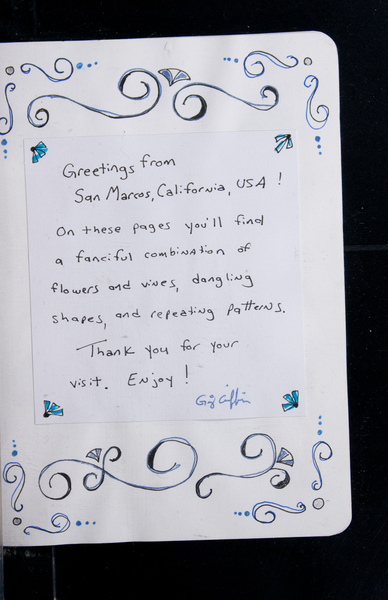 Greetings from
San Marcos, California, USA !
On these pages you'll find
a fanciful combination of
flowers and vines, dangling
shapes, and repeating patterns.
Thank you for your
visit. Enjoy !